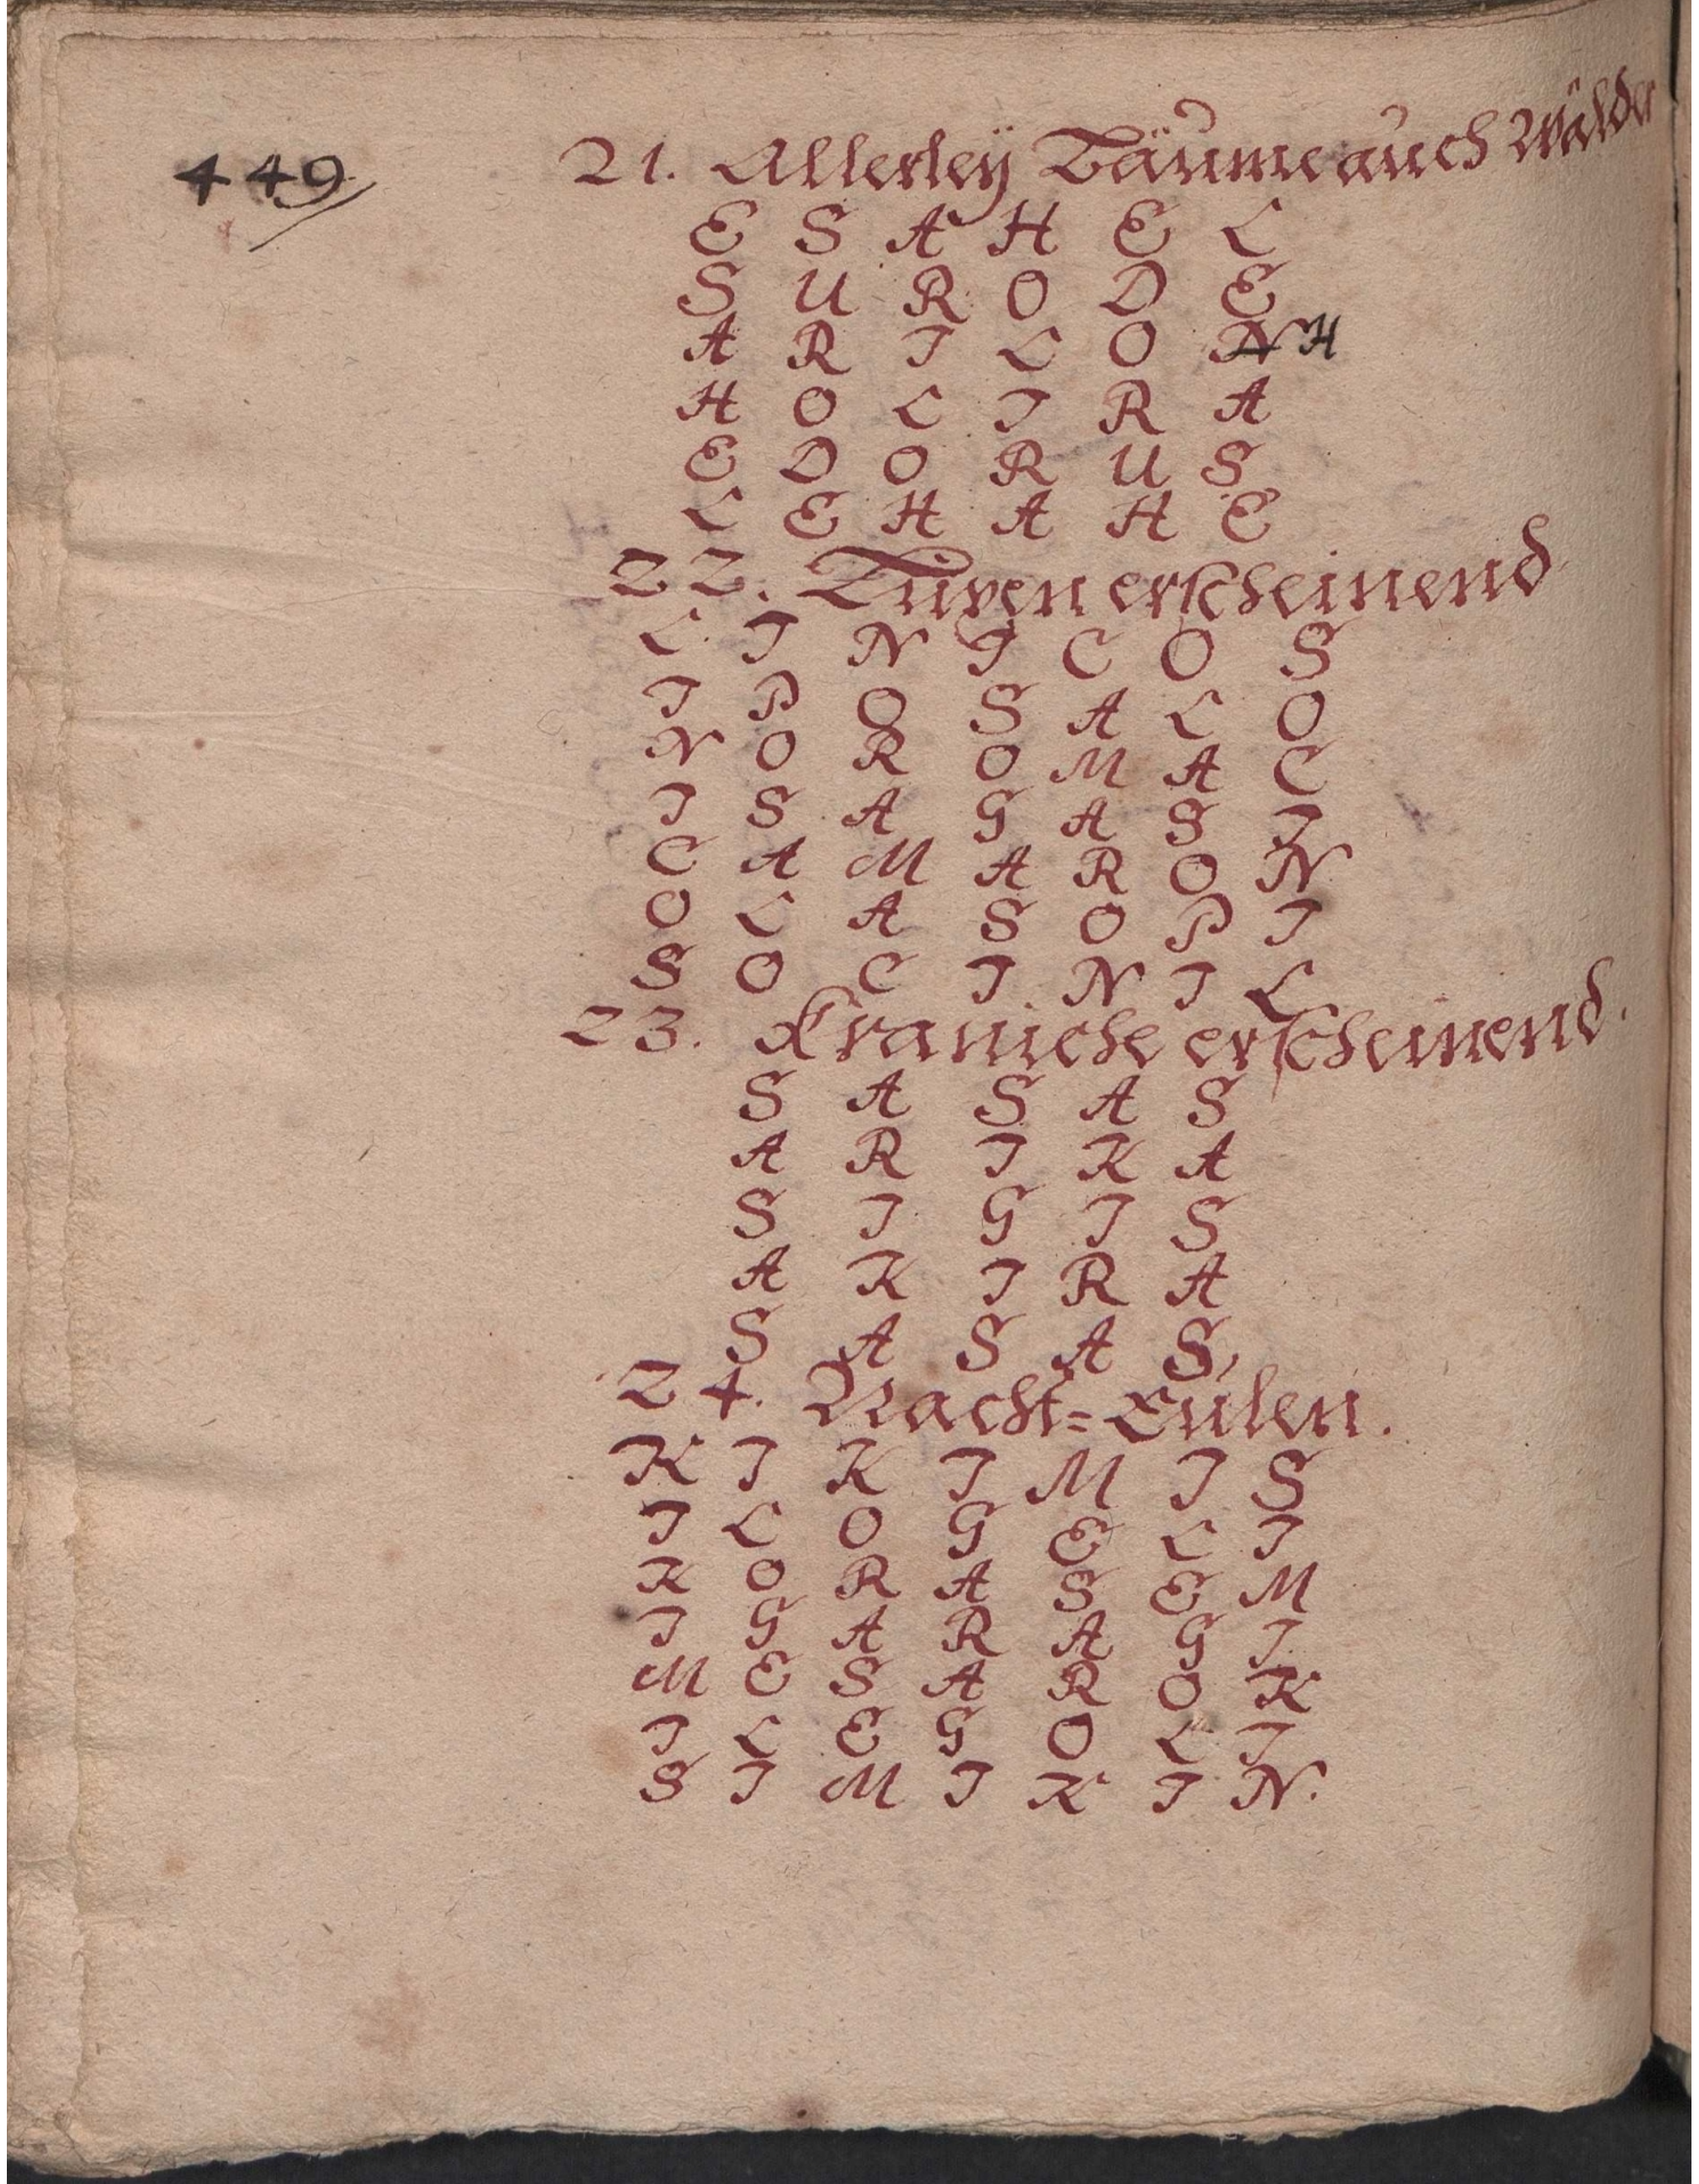 449
21. Allerleÿ Bäume auch Wälder
E S A H E L
S U R O D E
A R I L O N H
H O L I R A
E D O R U S
L E H A H E
22. Turen erscheinend
L I N I C O S
I P O S A L O
N O R O M A C
I S A G A S I
C A M A R O N
O L A S O P I
S O C I N I L
23. Kraniche erscheinend.
S A S A S
A R I K A
S I G I S
A K I R A
S A S A S,
24. Nacht=Eulen.
K I K I M I S
I L O G E L I
K O R A S E M
I G A R A G I
M E S A R O K
I L E G O L I
S I M I K I N.